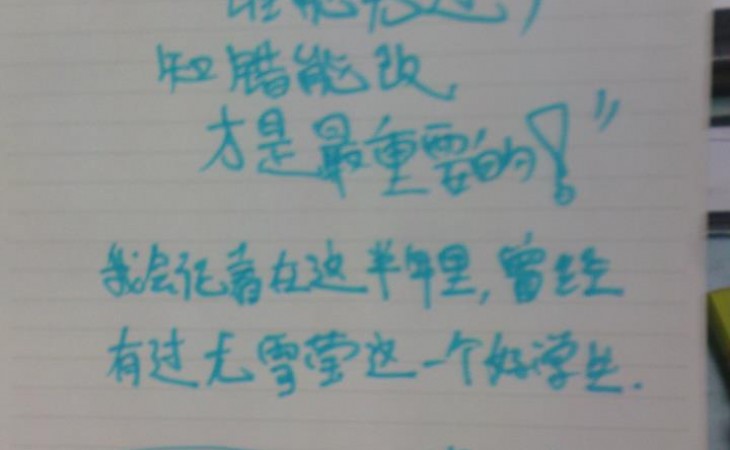 谁能无过,
知错能改,
才是最重要的!"
我会记着在这半年里,曾经
有过尤雪莹这一个好学生.